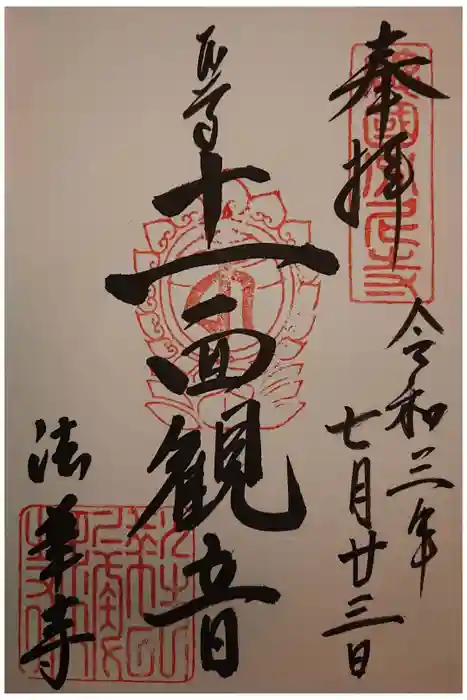 奉拝
令和三年
七月廿三日
本尊十一面観音
法華寺